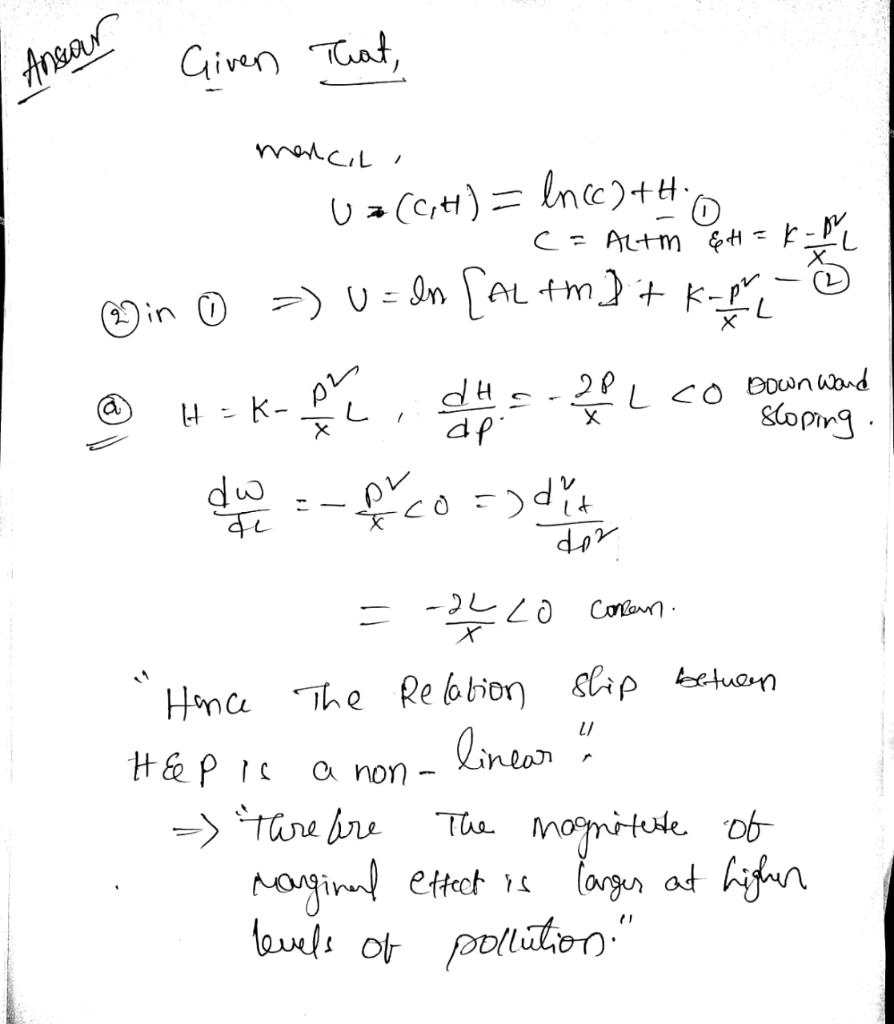 Answer Given That,
max C,L ,
U = (C,H) = ln(c) + H. ①
C = AL+m & H = K - P²/X L — ②
② in ① => U = ln [AL + m] + K - P²/X L
ⓐ H = K - P²/X L , dH/dP = - 2P/X L < 0 Downward sloping.
dw/dL = - P²/X < 0 => d²H/dP²
= -2L/X < 0
"Hence The Relation ship between
H & P is a non - linear".
=> "Therefore The magnitude of
marginal effect is larger at higher
levels of pollution."